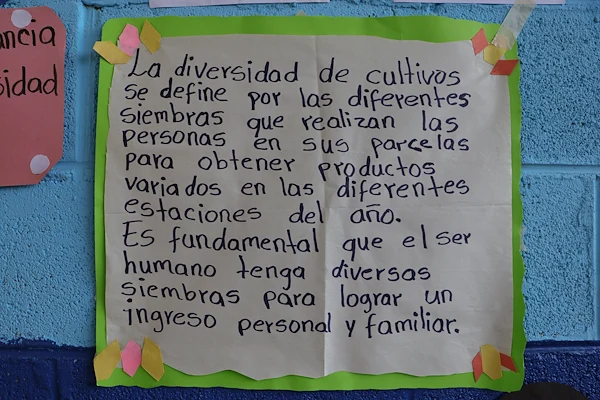 La diversidad de cultivos
se define por las diferentes
siembras que realizan las
personas en sus parcelas
para obtener productos
variados en las diferentes
estaciones del año.
Es fundamental que el ser
humano tenga diversas
siembras para lograr un
ingreso personal y familiar.